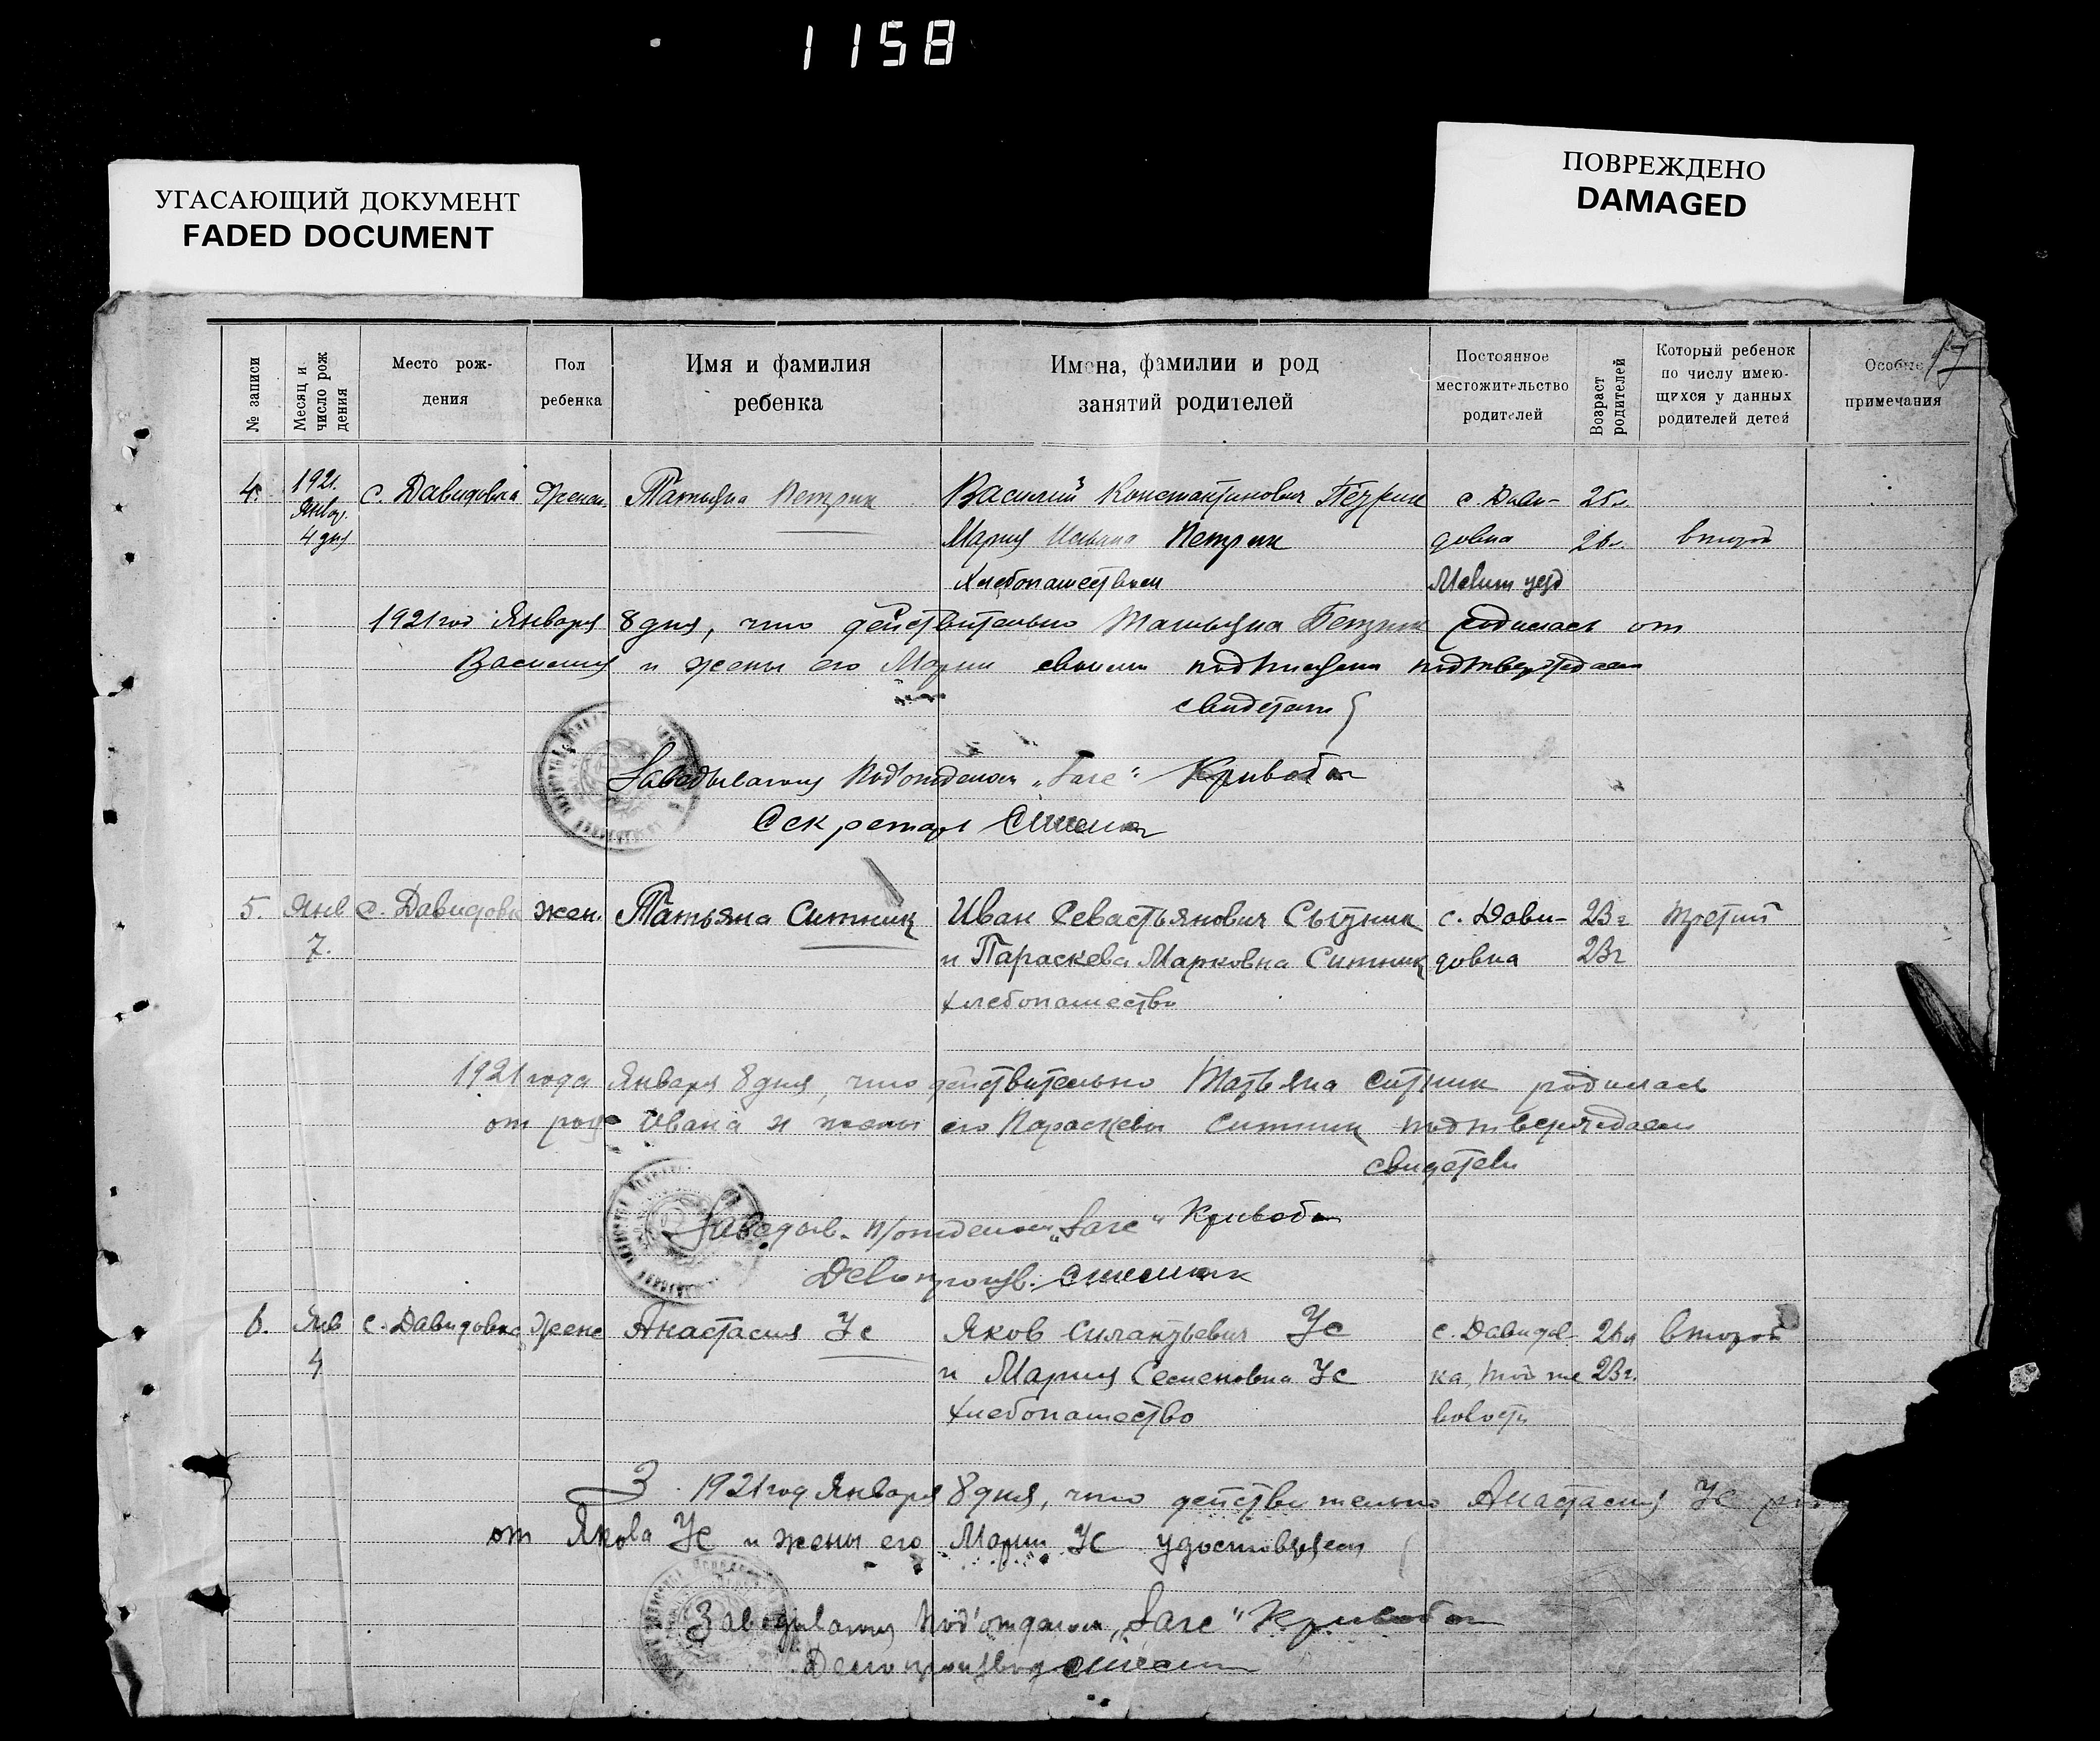 1158
УГАСАЮЩИЙ ДОКУМЕНТ
FADED DOCUMENT
ПОВРЕЖДЕНО
DAMAGED
17
№ записи
Месяц и число рождения
Место рождения
Пол ребенка
Имя и фамилия ребенка
Имена, фамилии и род занятий родителей
Постоянное местожительство родителей
Возраст родителей
Который ребенок по числу имеющихся у данных родителей детей
Особые примечания
4. 1921. с. Давидовка Женск. Татьяна Петрик Василий Константинович Петрик с. Дави-
Янвор. 4 дня Мария Петрик довка 26г. второй
Хлебопашеством уезд
1921 год Января 8 дня, что действительно Татьяна Петрик родилась от
Василия и жены его Марии своими подписями подтверждаем
свидетели
Заведывающ Под'отделом „Загс" Кривобок
Секретарь
5. Янв с. Давидовк жен. Татьяна Ситник Иван Севастьянович Сытник с. Дави- 23г третий
7. и Параскева Марковна Ситник довка 23г
хлебопашество
1921 года Января 8 дня, что действительно Татьяна Ситник родилась
от Ивана и жены его Параскевы Ситник подтверждаем
свидетели
Заведыв. п/отделом „Загс" Кривобок
Делопроизв.
6. Янв с. Давидовка Женс Анастасия Ус Яков Силантьевич Ус с. Давидов- второй
4 и Мария Семеновна Ус ка, той же 23г.
хлебопашество волости
1921 год Января 8 дня, что действительно Анастасия Ус
от Якова Ус и жены его Марии Ус удостоверяем
Заведывающ Под'отделом „Загс" Кривобок
Делопроизвод